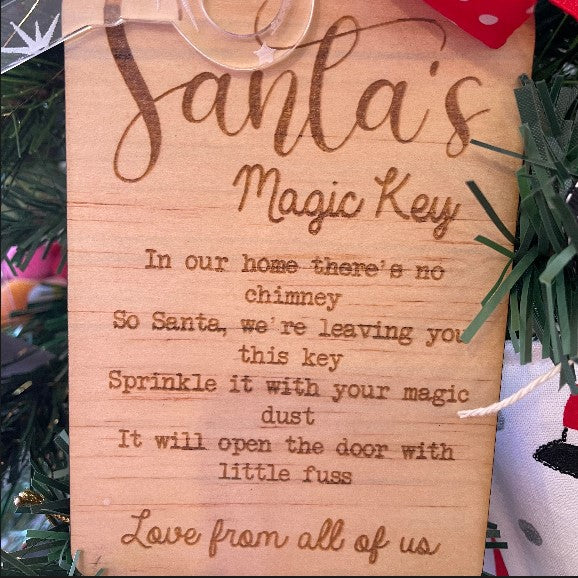 Santa's
Magic Key
In our home there's no
chimney
So Santa, we're leaving you
this key
Sprinkle it with your magic
dust
It will open the door with
little fuss
Love from all of us